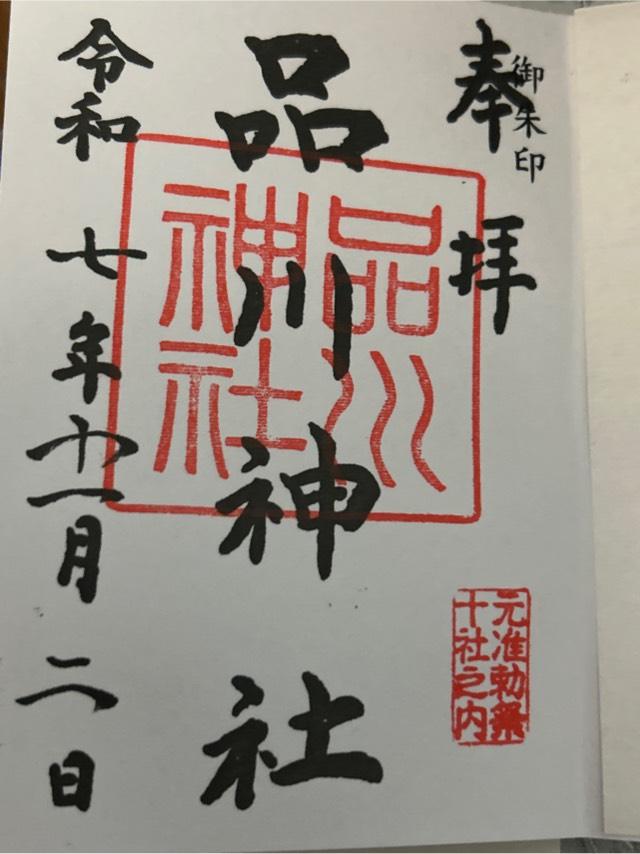 御朱印
奉拝
元准勅祭
十社之内
品川
神社
品川神社
令和七年十一月二日